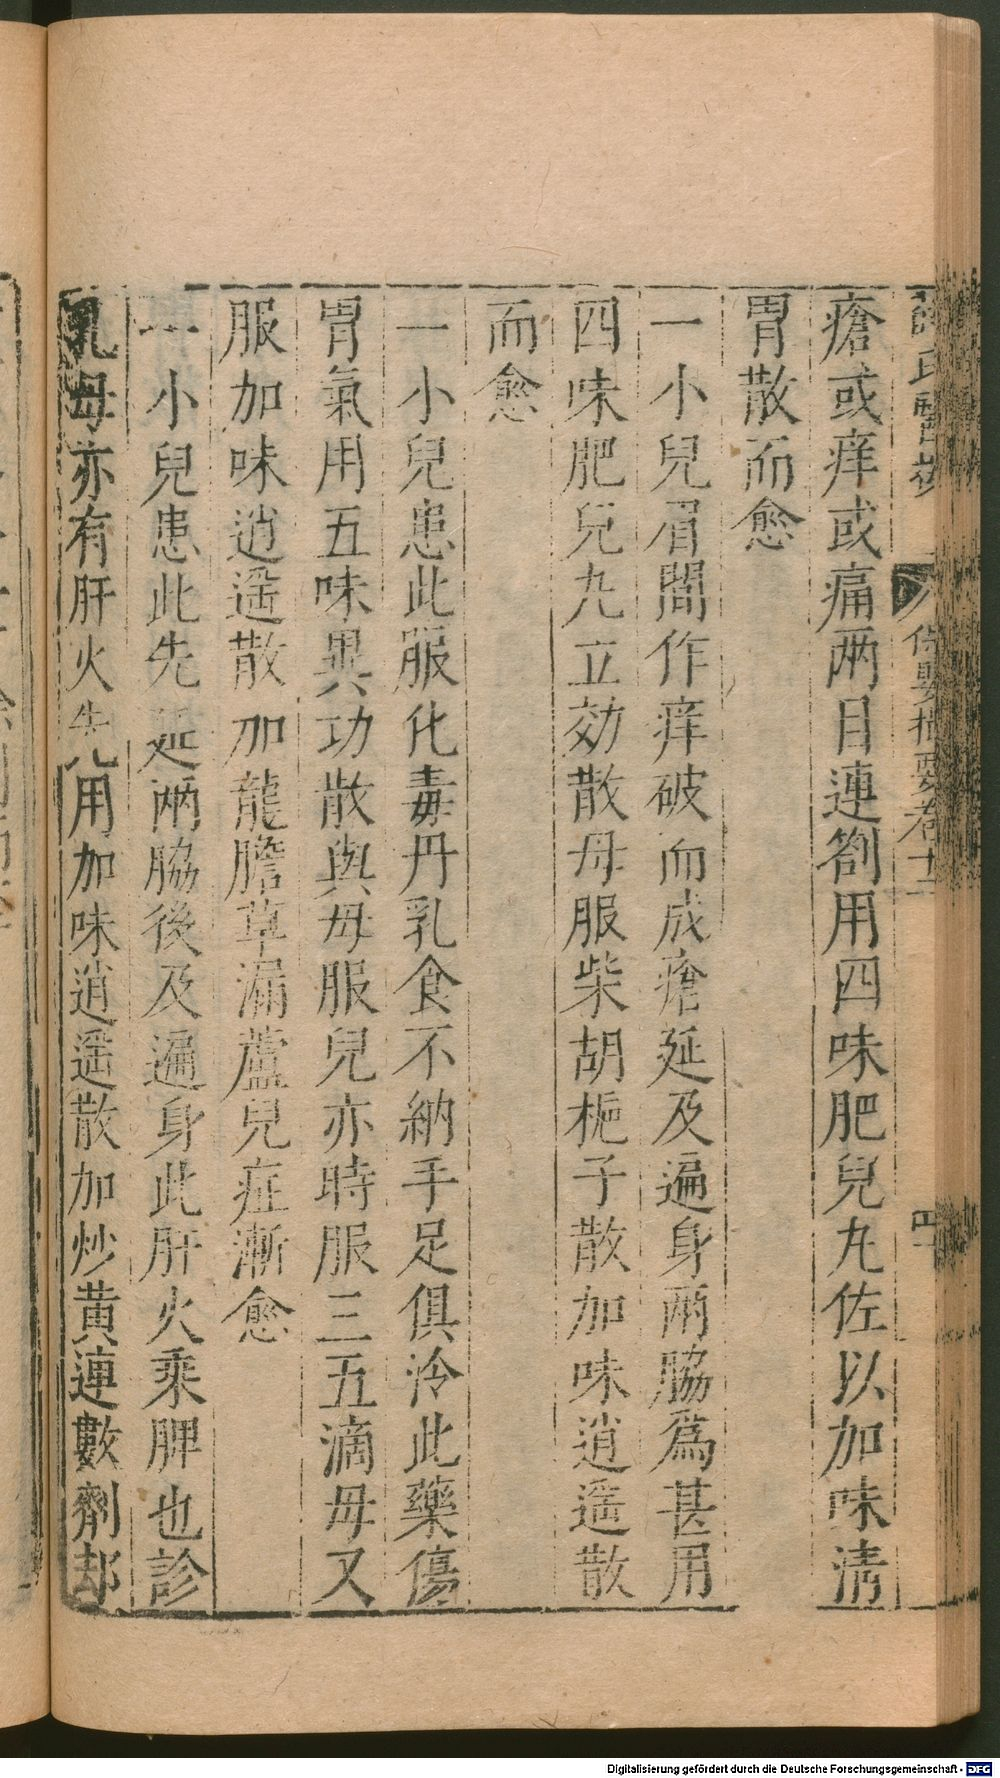 薛氏醫按 保嬰撮要卷十二 四
瘡或痒或痛兩目連劄用四味肥兒丸佐以加味清
胃散而愈
一小兒眉間作痒破而成瘡延及遍身兩脇爲甚用
四味肥兒丸立効散母服柴胡梔子散加味逍遥散
而愈
一小兒患此服化毒丹乳食不納手足俱冷此藥傷
胃氣用五味異功散與母服兒亦時服三五滴母又
服加味逍遥散加龍膽草漏蘆兒症漸愈
一小兒患此先延兩脇後及遍身此肝火乘脾也診
乳母亦有肝火先用加味逍遥散加炒黄連數劑却
Digitalisierung gefördert durch die Deutsche Forschungsgemeinschaft - DFG